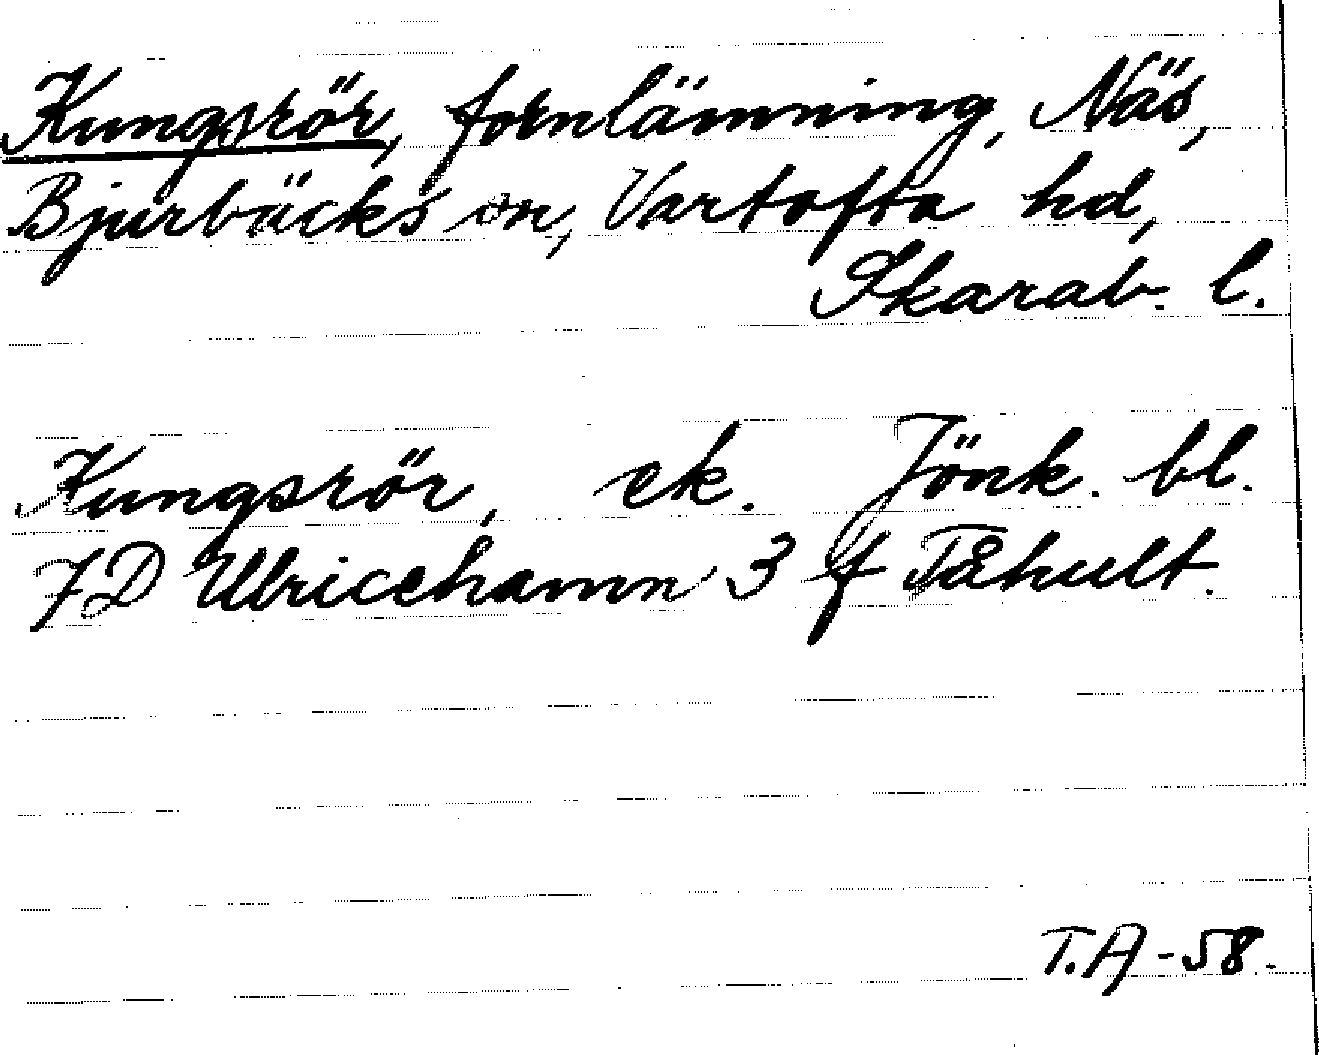 Kungsrör, fornlämning, Näs,
Bjurbäcks sn, Vartofta hd,
Skarab. l.
Kungsrör, ek. Jönk. bl.
7D Ulricehamn 3 f Tåhult.
T.A -58.